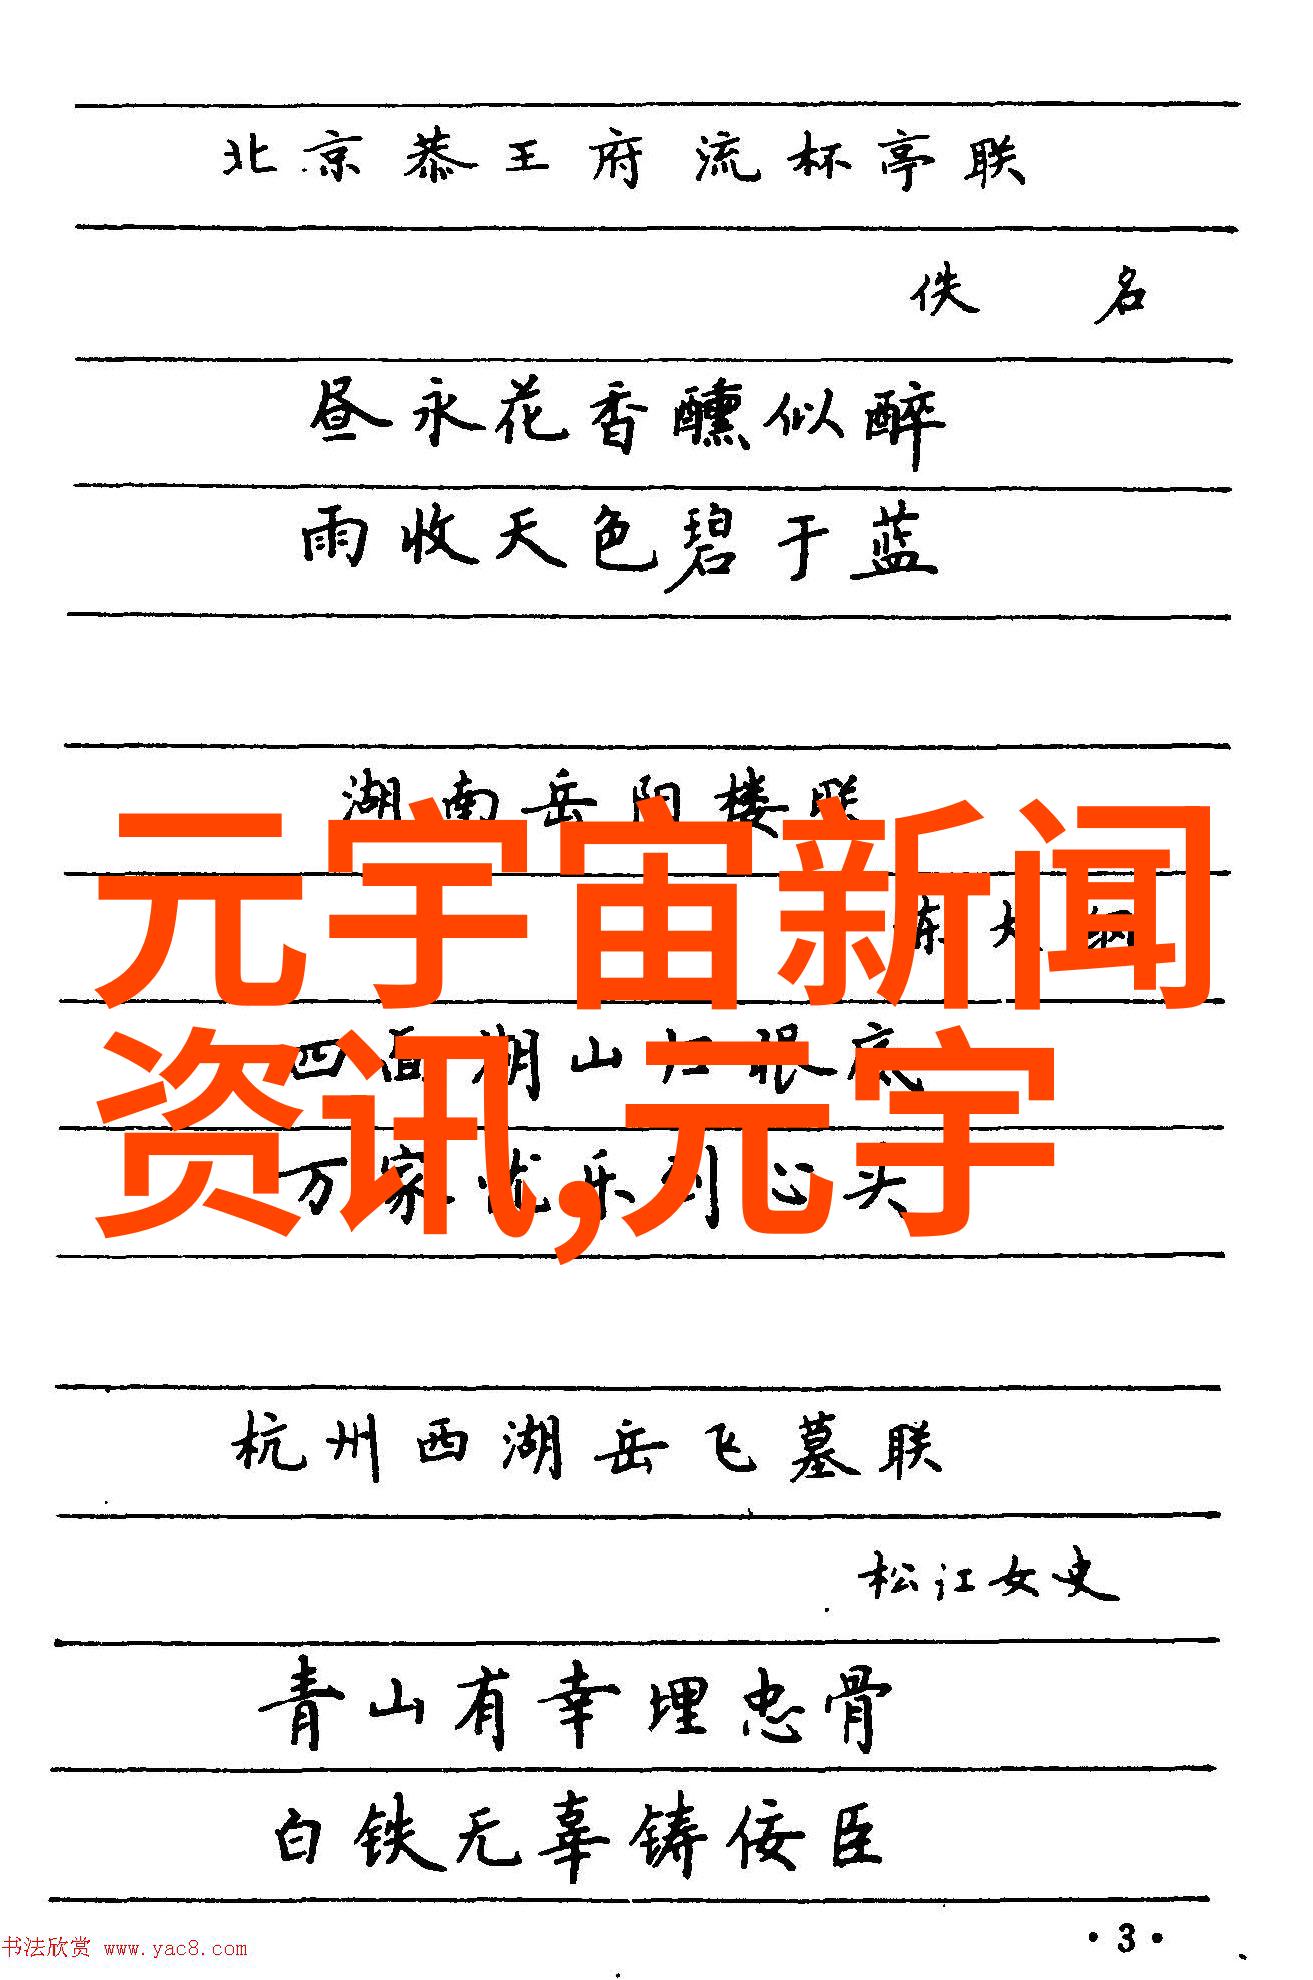 北京恭王府流杯亭联
佚名
昼永花香醺似醉
雨收天色碧于蓝
湖南岳阳楼联
陈大纲
元宇宙新闻
四面湖山归眼底
资讯,元宇
万家忧乐到心头
杭州西湖岳飞墓联
松江女史
青山有幸埋忠骨
白铁无辜铸佞臣
·3·
书法欣赏 www.yac8.com